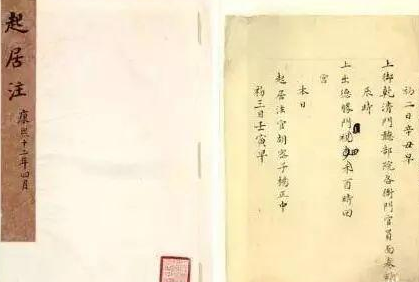 起居注
康熙十二年四月
初二日辛丑早
上御乾清門聽部院各衙門官員面奏
辰時
上出德勝門視
未酉時回
宮
本日
起居注官胡密子楊正中
初三日壬寅早